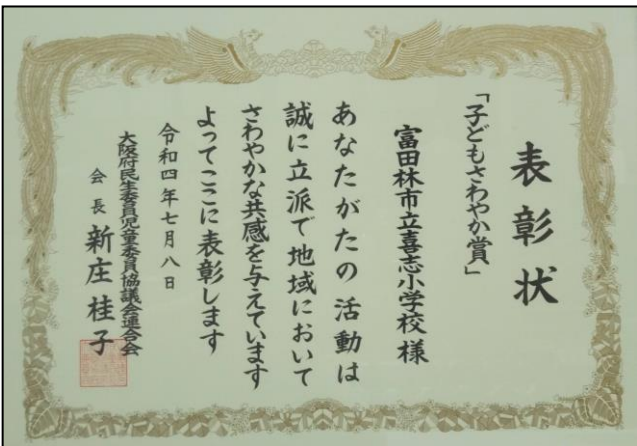 表彰状
「子どもさわやか賞」
富田林市立喜志小学校様
あなたがたの活動は
誠に立派で地域において
さわやかな共感を与えています
よってここに表彰します
令和四年七月八日
大阪府民生委員児童委員協議会連合会
会長 新庄桂子